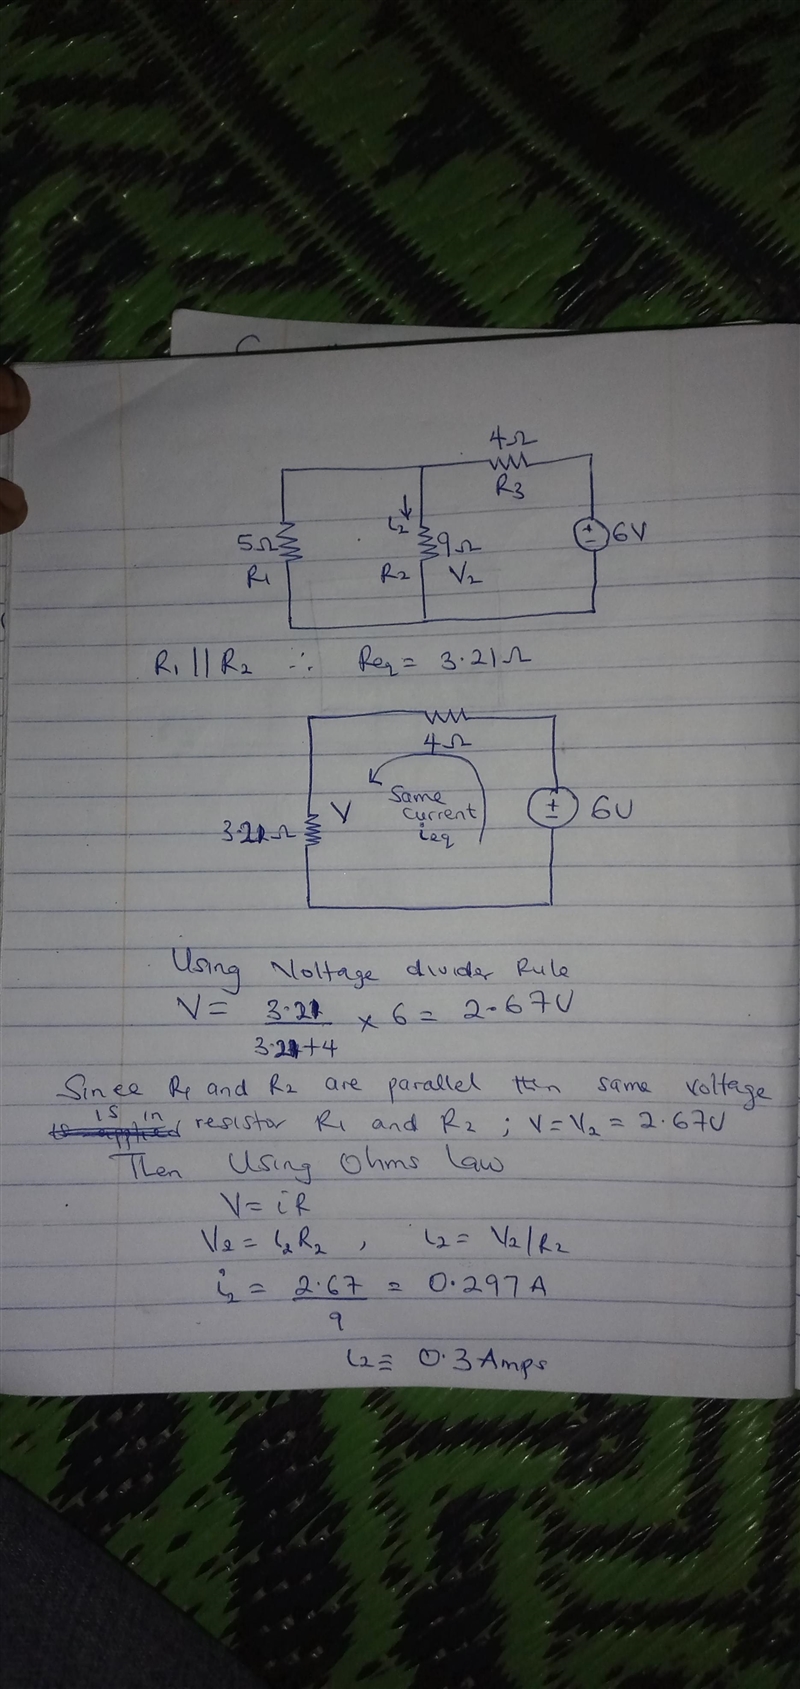 4Ω
R3
5Ω
R1
i2
R2
9Ω
V2
6V
R1 || R2 ∴ Req = 3.21Ω
4Ω
3.21Ω
V
Same
current
ieq
6V
Using Voltage divider Rule
V = 3.21 / 3.21+4 × 6 = 2.67V
Since R1 and R2 are parallel then same voltage
is in resistor R1 and R2 ; V = V2 = 2.67V
Then Using Ohms law
V = iR
V2 = i2R2 , i2 = V2/R2
i2 = 2.67 / 9 = 0.297A
i2 ≡ 0.3 Amps